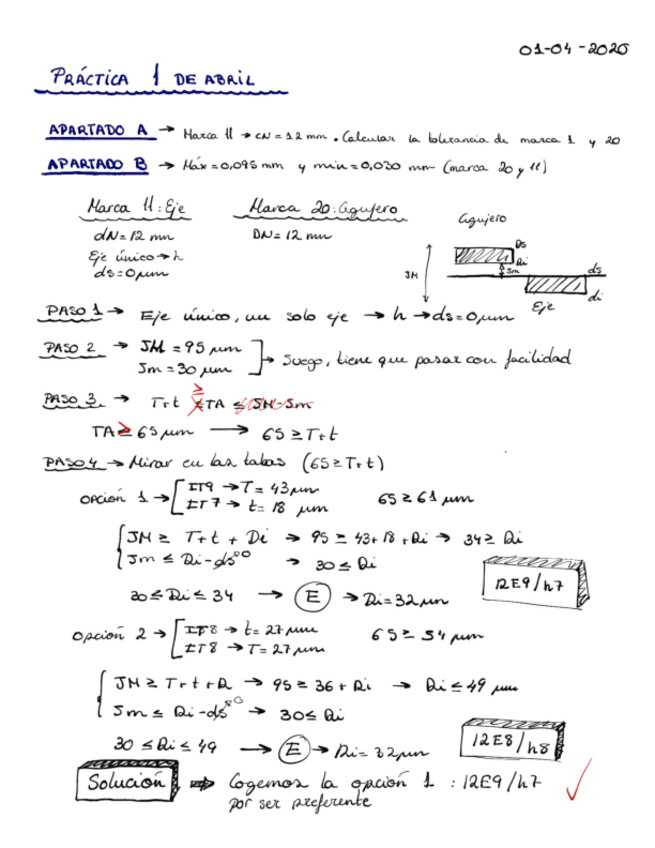 01-04-2020
PRÁCTICA 1 DE ABRIL
APARTADO A → Marca 11 → CN = 12 mm. Calcular la tolerancia de marca 1 y 20
APARTADO B → Máx = 0,095 mm y min = 0,030 mm (marca 20 y 11)
Marca 11: Eje
Marca 20: agujero
Agujero
dN = 12 mm
DN = 12 mm
Eje único → h
ds = 0 μm
Ds
Di
Jm
JM
ds
di
Eje
PASO 1 → Eje único, un solo eje → h → ds = 0 μm
PASO 2 → JM = 95 μm
Jm = 30 μm
Juego, tiene que pasar con facilidad
PASO 3 → T+t ≥ TA ≤ JM-Jm
TA ≥ 65 μm → 65 ≥ T+t
PASO 4 → Mirar en las tablas (65 ≥ T+t)
OPCIÓN 1 → IT9 → T = 43 μm
IT7 → t = 18 μm
65 ≥ 61 μm
JM ≥ T+t + Di → 95 ≥ 43+18+Di → 34 ≥ Di
Jm ≤ Di-ds⁰ → 30 ≤ Di
30 ≤ Di ≤ 34 → E → Di = 32 μm
12E9/h7
Opción 2 → IT8 → t = 27 μm
IT8 → T = 27 μm
65 ≥ 54 μm
JM ≥ T+t+D → 95 ≥ 36 + Di → Di ≤ 49 μm
Jm ≤ Di-ds → 30 ≤ Di
30 ≤ Di ≤ 49 → E → Di = 32 μm
12E8/h8
Solución ⇒ Cogemos la opción 1 : 12E9/h7
por ser preferente